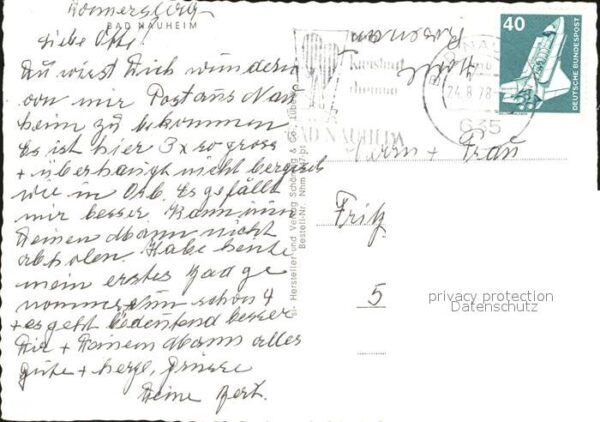 Donnerstag
BAD NAUHEIM
Liebe Otti!
Du wirst Dich wundern
von mir Post aus Nau
heim zu bekommen
Es ist hier 3x so gross
+ überhaupt nicht bergisch
wie in Orb. Es gefällt
mir besser. Kann nun
Deinen Mann nicht
abholen. Habe heute
mein erstes Bad ge
nommen schon 4
+ es geht bedeutend besser
Dir + Deinem Mann alles
gute + herzl. Grüsse
Deine
Hersteller und Verlag Schöning & Co., Lübeck
Bestell-Nr. Nhm
BAD NAUHEIM
24.8.78
635
40
DEUTSCHE BUNDESPOST
Herrn + Frau
Fritz
5
privacy protection
Datenschutz